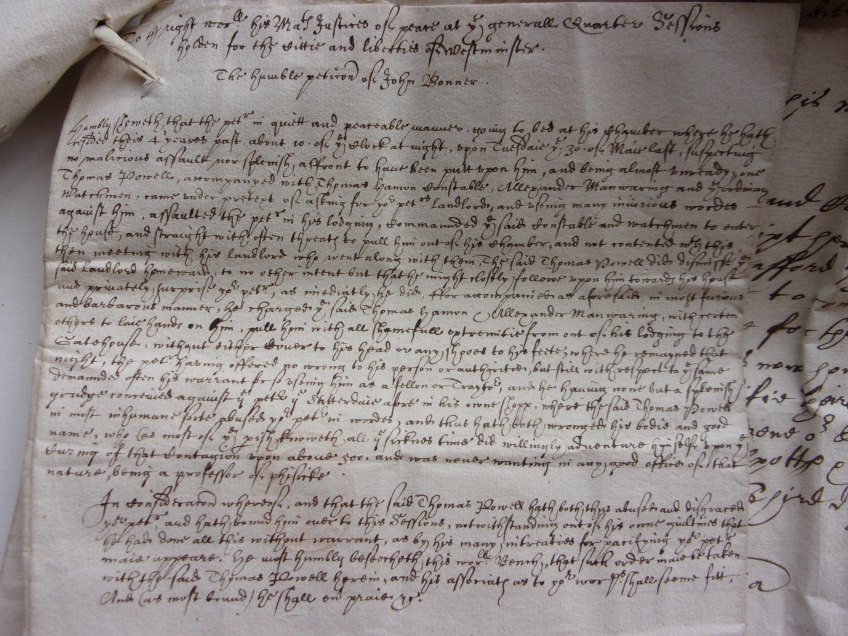 To the right worll his Mats Justices of peace at ye generall Quarter Sessions
holden for the Cittie and liberties of Westminster.
The humble peticion of John Bonner.
Humbly sheweth, that the petr in quiett and peaceable manner, going to bed at his Chamber where he hath
theis 4 yeares past, about 10. of ye Clock at night, upon Tuesdaie ye 30 of Maie last, suspecting
no malicious assault nor splenish affront to have been putt upon him, and being almost unready, one
Thomas Powell, accompanied with Thomas Hamon Constable, Allexander Manwaring and
Watchmen, came under pretext of asking for yor petrs landlord, and using many injurious wordes
against him, assaulted the petr in his lodging, commainded ye said Constable and watchmen to enter
the house, and straight with often threats to pull him out of his Chamber, and not contented wth this
then meeting with his landlord who went along with them, The said Thomas Powell did dismisse ye
said landlord homeward, to no other intent but that he might closely followe upon him towards his house
and privately surprise yor petr, as imediatly he did. ffor accompanied as aforesaid in most furious
and barbarous manner, he charged ye said Thomas Hamon, Allexander Manwaring, with certen
others to laie hands on him, pull him with all shamefull extremitie from out of his lodging to the
Gatehouse, without either Cover to his head or any shooes to his feete, where he remayned that
night, the petr having offered no wrong to his person or authoritie, but still with respect to ye same
demainded often his warrant for so using him as a fellon or Traytor, and he having none but a splenish
grudge conceived against ye petr ye Satterdaie afore in his owne shopp, where the said Thomas Powell
in most inhumane sorte abused yor petr in wordes, and thus hath both wronged his bodie and good
name, who (as most of ye parish knoweth) all ye sicknes time did willingly adventure himself upon ye
Curing of that Contagion upon above 300. and was never wanting in any good office of that
nature, being a professor of phisicke.
In Consideracon whereof, and that the said Thomas Powell hath both thus abused and disgraced
yor petr, and hath bound him over to this Sessions, notwithstanding out of his owne guiltines that
he had done all this without warrant, as by his many intreaties for pacifying yor petr
maie appeare. He most humbly beseecheth this worll Bench, that such order maie be taken
with the said Thomas Powell herein, and his associats as to yor worps shall seeme fitt.
And (as most bound) he shall ever praie, &c.